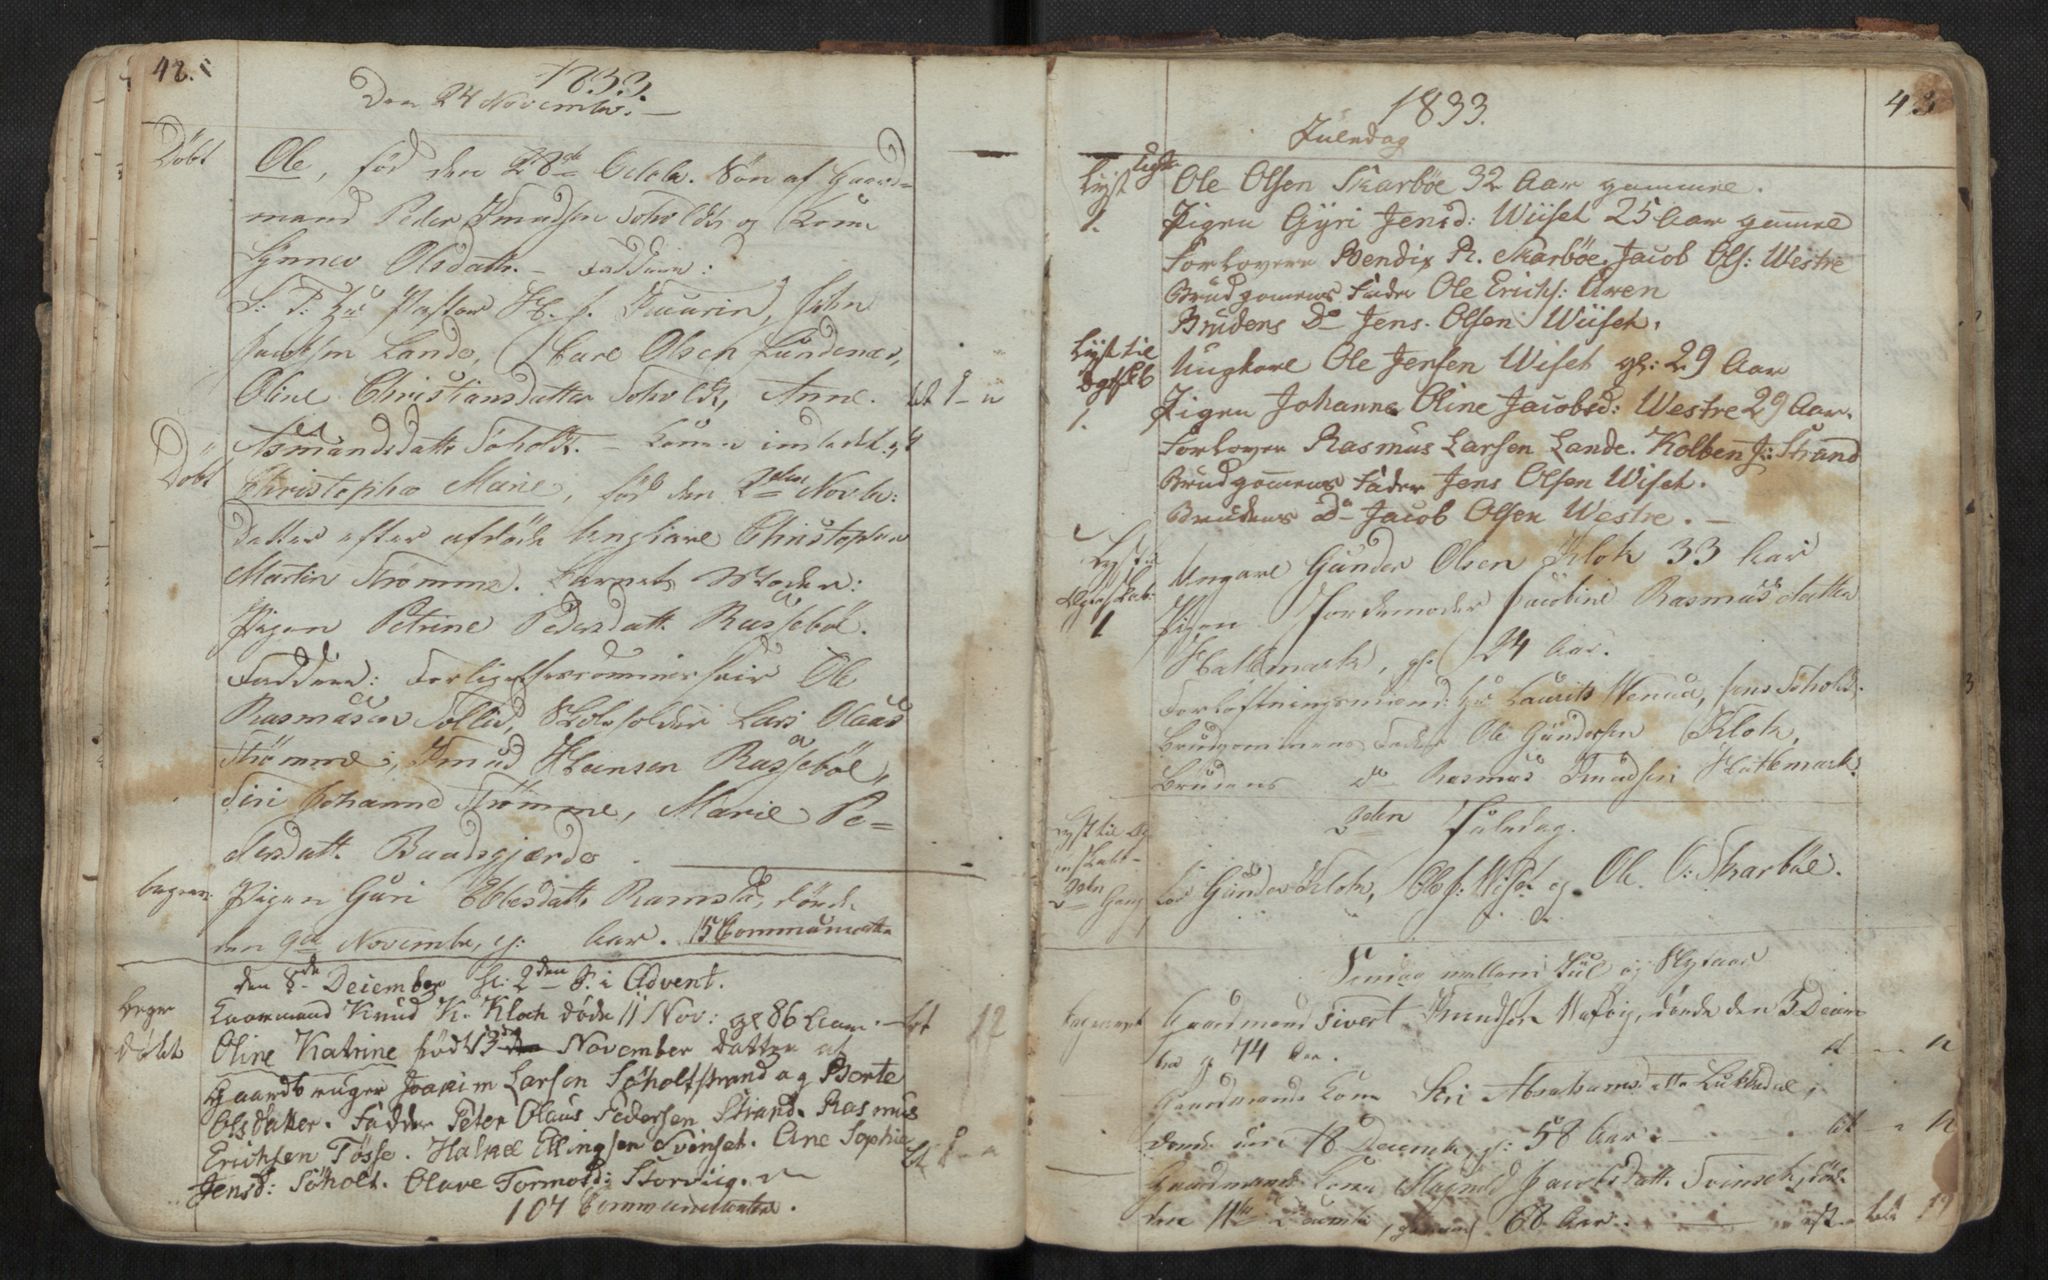 42.
1833.
Den 24 November. —
Døbt
Ole, fød den 28de Octob. Søn af Gaard=
mand Peder Knudsen Søholdt og Kone
Synnev Olsdatter. — Faddere:
S: T: Hr Pastor H. J. Thaarin,
Jacobsen Lande, Olsen Lundenes,
Oline Christiansdatter Søholdt, Anne
Døbt
Asmundsdatt. Søholdt. — Konen indledt
Christopha Marie, fød den 2den Novb:
Datter efter afdøde Ungkarl Christopher
Martin Strømme. Barnets Moder:
Pigen Petrine Pedersdatt. Rassebøl.
Faddere: Forligelsescommissair Ole
Rasmussen Solli, Skoleholder Lars Olaus
Strømme, Knud Hansen Rassebøl,
Siri Johanne Strømme, Marie Pe=
dersdatt. Baadsgjærde
begrav:
Pigen Guri Ebbesdatt. Ramstad, døde
den 9de November, g: Aar. 15 Communicanter
den 8de December bl: 2den S: i Advent.
Begr
Gaarmand Knud K. Kloch døde 11 Nov: gl 86 Aar. — 12
døbt
Oline Katrine født 13de November Datter af
Gaardbruger Joakim Larsen Søholtstrand og Berte
Olsdatter. Fadder Peter Olaus Pedersen Strand. Rasmus
Erichsen Tøsse. Halvel Ellingsen Svinset. Ane Sophie
Jensd: Søholt. Olave Tormodsd: Storviig.
107 Communicantere.
43
1833.
Juledag
Lyst
1.
Ole Olsen Skarbøe 32 Aar gammel.
Pigen Gyri Jensd: Wiiset 25 Aar gammel
Forlovere Bendix R. Skarbøe, Jacob Ols: Westre
Brudgomens Fader Ole Erichs: Aren
Brudens Do Jens Olsen Wiiset.
Lyst til
Ægtskb
1.
Ungkarl Ole Jensen Wiset gl: 29 Aar
Pigen Johanne Oline Jacobsd: Westre 29 Aar.
Forlover Rasmus Larsen Lande. Kolben J: Strand
Brudgomens Fader Jens Olsen Wiset.
Brudens Do Jacob Olsen Westre. —
Lyst til
Ægteskab:
1
Ungkarl Gunder Olsen Klok 33 Aar
Pigen Jordemoder Jacobine Rasmusdatter
Hattemark, gl: 24 Aar.
Forløftningsmænd: Hr Laurits Wenaas, Jens Søholdt.
Brudgommens Fader Ole Gundersen Klok,
Brudens do Rasmus Knudsen Hattemark.
2den Juledag.
Lyst til Æg
teskab
2den Gang
for Gunder Klok, Ole J: Wiset og Ole O: Skarbøe.
Søndag mellem Juul og Nytaar
begravet
Gaardmand Sivert Knudsen døde den 5 Decem
ber g 74 Aar.
Gaardmands Kone Siri Abrahamsdatter
døde den 18 Decemb. g: 58 Aar.
Gaardmands Kone Jacobsdatt. Svinset, døde
den 11te Decembr, gammel 68 Aar.